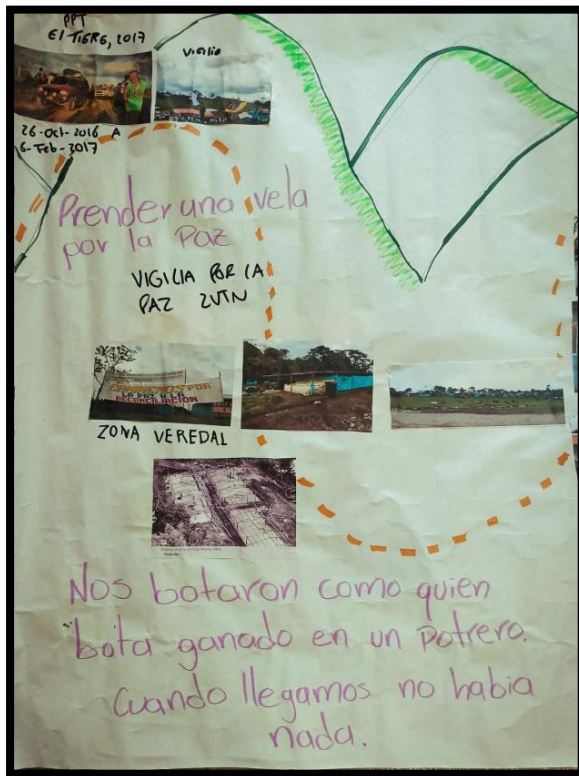 PPT
El TIGRE, 2017
Vigilia
26-Oct-2016 A
6-Feb-2017
Prender una vela
por la Paz
VIGILIA POR LA
PAZ ZVTN
LA PAZ Y LA
RECONCILIACIÓN
ZONA VEREDAL
Nos botaron como quien
bota ganado en un potrero.
Cuando llegamos no habia
nada.